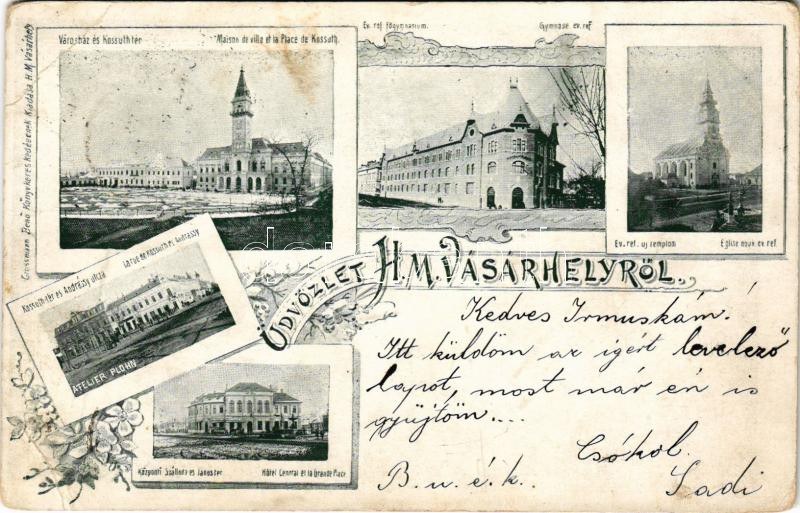 Városház és Kossuth tér
Maison de ville et la Place de Kossuth.
Ev. ref. főgymnásium.
Gymnase ev. ref
Grossmann Benő Könyvkereskedésének Kiadása H.M.Vásárhely
Ev. ref. uj templom
Eglise nouv. ev. ref.
Kossuth-tér és Andrássy utcza
La rue de Kossuth et Andrássy
ATELIER PLOHN
ÜDVÖZLET H.M.VÁSÁRHELYRŐL.
Központi Szálloda és János tér
Hôtel Central et la Grande Place
Kedves Irmuskám.
Itt küldöm az igért levelező
lapot, most már én is
gyüjtöm....
Csókol.
B. u. é. k.. Sadi
darabanth